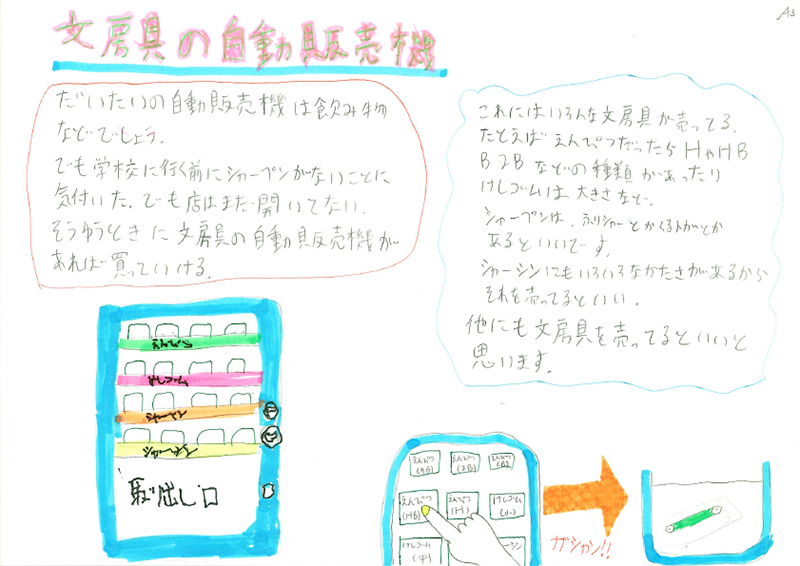 A3
文房具の自動販売機
だいたいの自動販売機は飲み物
などでしょう.
でも学校に行く前にシャープンがないことに
気付いた。でも店はまだ開いてない.
そうゆうときに文房具の自動販売機が
あれば買っていける.
これにはいろんな文房具が売ってる.
たとえばえんぴつだったらHやHB
B 2Bなどの種類があったり
けしゴムは大きさなど.
シャープンは、ふりシャーとかくるトガとか
あるといいです,
シャーシンにもいろいろなかたさがあるから
それを売ってるといい.
他にも文房具を売ってるといいと
思います.
えんぴつ
けしゴム
シャーペン
シャーシン
取り出し口
えんぴつ
(2B)
えんぴつ
(B)
えんぴつ
(HB)
えんぴつ
(H)
けしゴム
(小)
けしゴム
(中)
ーシン
ガシャン!!